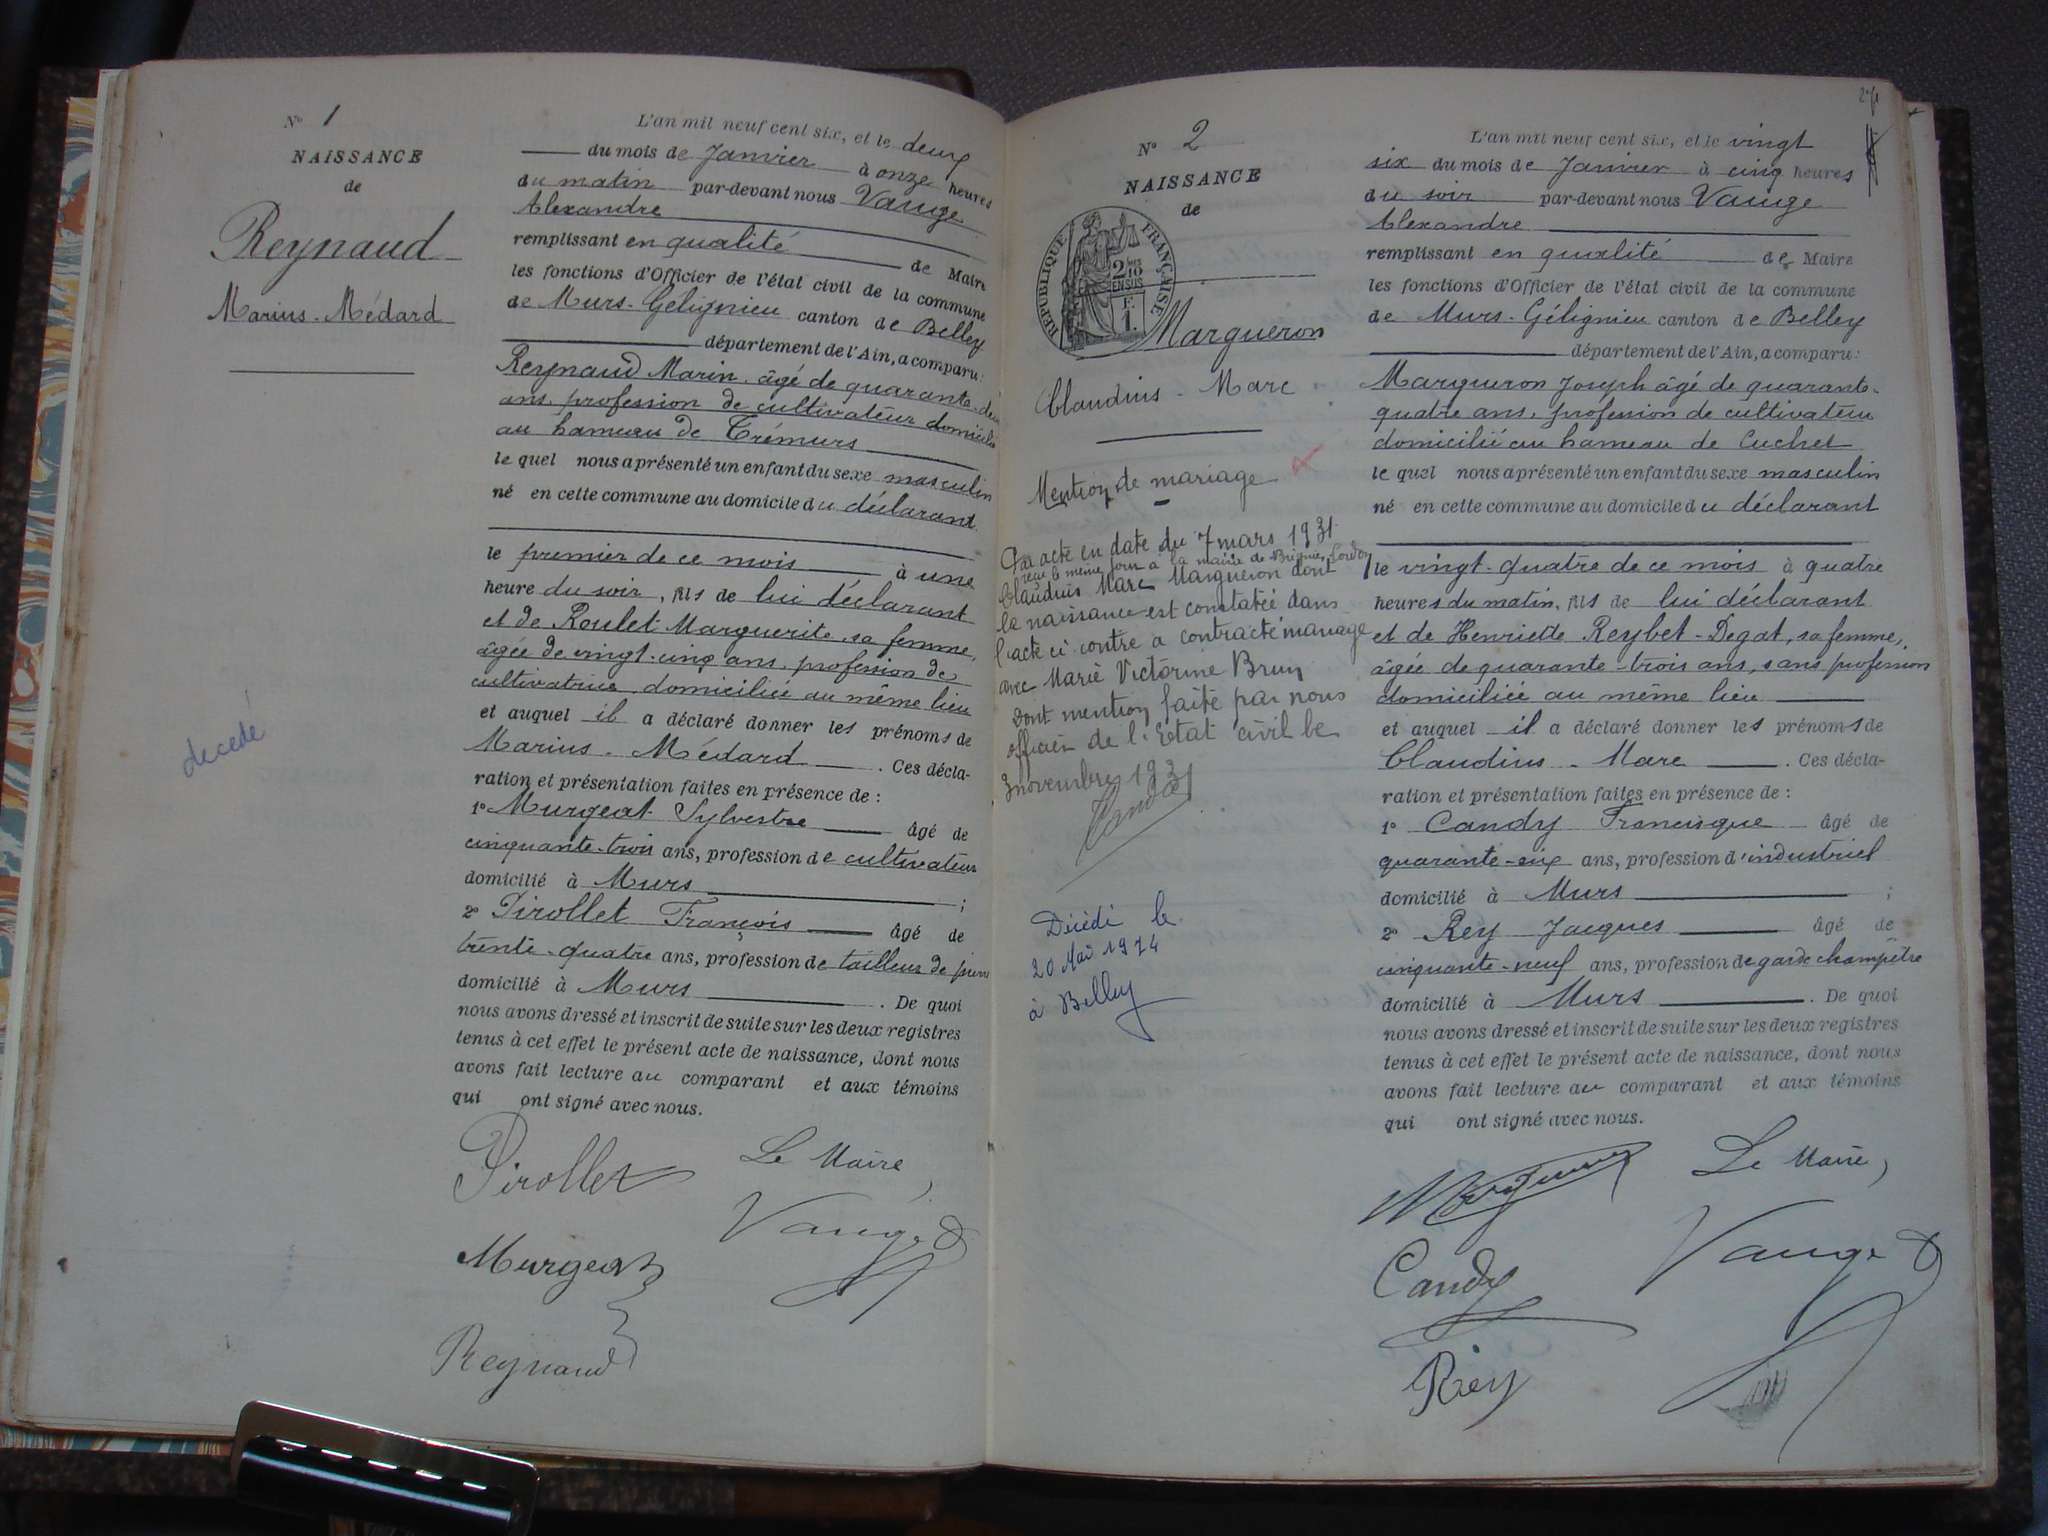 N° 1
NAISSANCE
de
Reynaud
Marius-Médard
decedé
L'an mil neuf cent six, et le deux
du mois de Janvier à onze heures
du matin par-devant nous Vauge
Alexandre
remplissant en qualité de Maire
les fonctions d'Officier de l'état civil de la commune
de Murs-Gélignieu canton de Belley
département de l'Ain, a comparu:
Reynaud Marin, âgé de quarante-deux
ans, profession de cultivateur domicilié
au hameau de Trémurs
le quel nous a présenté un enfant du sexe masculin
né en cette commune au domicile du déclarant
le premier de ce mois à une
heure du soir, fils de lui déclarant
et de Roulet Marguerite sa femme,
âgée de vingt-cinq ans, profession de
cultivatrice, domiciliée au même lieu
et auquel il a déclaré donner les prénoms de
Marius-Médard. Ces décla-
ration et présentation faites en présence de :
1° Murgeat Sylvestre âgé de
cinquante-trois ans, profession de cultivateur
domicilié à Murs ;
2° Pirollet François âgé de
trente-quatre ans, profession de tailleur de pierre
domicilié à Murs. De quoi
nous avons dressé et inscrit de suite sur les deux registres
tenus à cet effet le présent acte de naissance, dont nous
avons fait lecture au comparant et aux témoins
qui ont signé avec nous.
Pirollet Le Maire,
Vauge
Murgeat
Reynaud
N° 2
NAISSANCE
de
RÉPUBLIQUE FRANÇAISE
2/10
EN SUS
F.
1.
Margueron
Claudius-Marc
Mention de mariage
Par acte en date du 7 mars 1931
reçu le même jour à la mairie de Brégnier-Cordon
Claudius Marc Margueron dont
la naissance est constatée dans
l'acte ci-contre a contracté mariage
avec Marie Victorine Brun
Dont mention faite par nous
officier de l'Etat civil le
3 novembre 1931
Candy
Décédé le
20 Mai 1974
à Belley
271
L'an mil neuf cent six, et le vingt
six du mois de Janvier à cinq heures
du soir par-devant nous Vauge
Alexandre
remplissant en qualité de Maire
les fonctions d'Officier de l'état civil de la commune
de Murs-Gélignieu canton de Belley
département de l'Ain, a comparu:
Margueron Joseph âgé de quarante-
quatre ans, profession de cultivateur
domicilié au hameau de Cuchet
le quel nous a présenté un enfant du sexe masculin
né en cette commune au domicile du déclarant
le vingt-quatre de ce mois à quatre
heures du matin, fils de lui déclarant
et de Henriette Reybet-Degat, sa femme,
âgée de quarante-trois ans, sans profession
domiciliée au même lieu
et auquel il a déclaré donner les prénoms de
Claudius-Marc. Ces décla-
ration et présentation faites en présence de :
1° Candy Francisque âgé de
quarante-six ans, profession d'industriel
domicilié à Murs ;
2° Rey Jacques âgé de
cinquante-neuf ans, profession de garde champêtre
domicilié à Murs. De quoi
nous avons dressé et inscrit de suite sur les deux registres
tenus à cet effet le présent acte de naissance, dont nous
avons fait lecture au comparant et aux témoins
qui ont signé avec nous.
Margueron Le Maire,
Candy Vauge
Rey